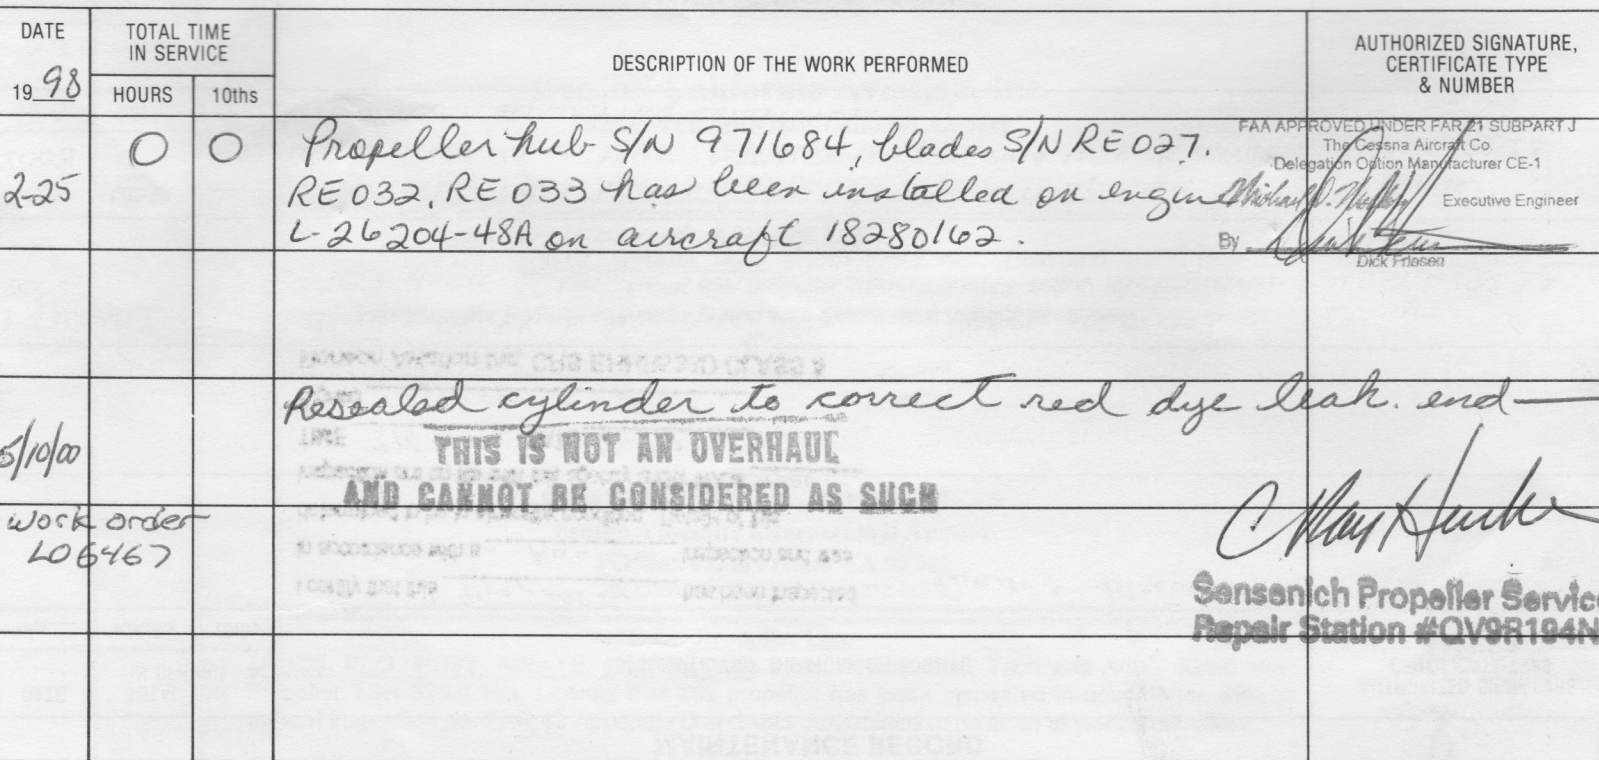 DATE
TOTAL TIME
IN SERVICE
DESCRIPTION OF THE WORK PERFORMED
AUTHORIZED SIGNATURE,
CERTIFICATE TYPE
& NUMBER
1998
HOURS
10ths
2-25
0 0
Propeller hub S/N 971684, blades S/N RE027,
RE032, RE033 has been installed on engine
L-26204-48A on aircraft 18280162.
FAA APPROVED UNDER FAR 21 SUBPART J
The Cessna Aircraft Co.
Delegation Option Manufacturer CE-1
Executive Engineer
By
Dick Friesen
5/10/00
Resealed cylinder to correct red dye leak. end
THIS IS NOT AN OVERHAUL
AND CANNOT BE CONSIDERED AS SUCH
Work order
L06467
Sensenich Propeller Service
Repair Station #QV9R194N